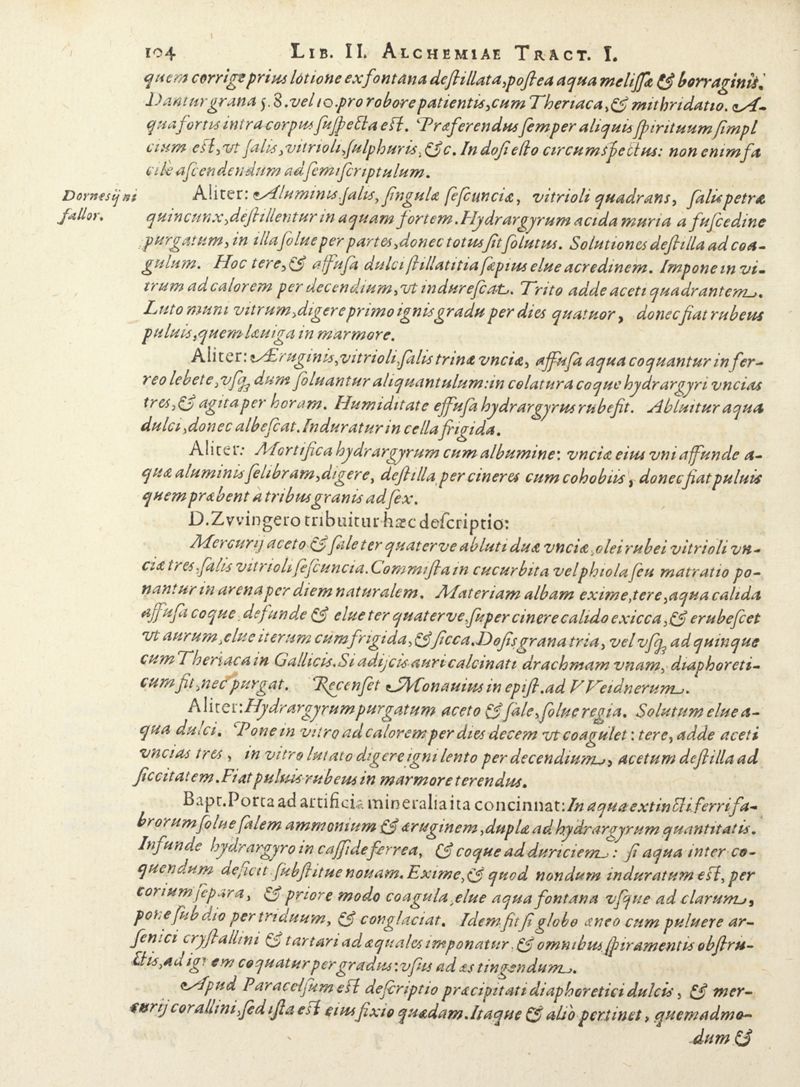 104 LIB. II. ALCHEMIAE TRACT. I.
quem corrige prius lotione ex fontana destillata, postea aqua melissæ & borraginis.
Dantur grana 5. 8. vel 10. pro robore patientis, cum Theriaca, & mithridatio. A-
qua fortis intra corpus suspecta est. Præferendus semper aliquis spirituum simpl
cium est, vt salis, vitrioli, sulphuris, &c. In dosi esto circumspectus: non enim fa
cile ascendendum ad semiscriptulum.
Dornesij ni
fallor.
Aliter: Aluminus salis, singulæ sescunciæ, vitrioli quadrans, salis petræ
quincunx, destillentur in aquam fortem. Hydrargyrum acida muria a fuscedine
purgatum, in illa solue per partes, donec totus sit solutus. Solutiones destilla ad coa-
gulum. Hoc tere, & affusa dulci stillatitia sæpius elue acredinem. Impone in vi-
trum ad calorem per decendium, vt indurescat. Trito adde aceti quadrantem.
Luto muni vitrum, digere primo ignis gradu per dies quatuor, donec fiat rubeus
puluis, quem læuiga in marmore.
Aliter: Æruginis, vitrioli, salis trinæ vnciæ, affusa aqua coquantur in fer-
reo lebete, vsq; dum soluantur aliquantulum: in colatura coque hydrargyri vncias
tres, & agita per horam. Humiditate effusa hydrargyrus rubefit. Abluitur aqua
dulci, donec albescat. Induratur in cella frigida.
Aliter: Mortifica hydrargyrum cum albumine: vnciæ eius vni affunde a-
quæ aluminis selibram, digere, destilla per cineres cum cohobiis, donec fiat puluis
quem præbent a tribus granis ad sex.
D. Zvvingero tribuitur hæc descriptio:
Mercurij aceto & sale ter quaterve abluti duæ vnciæ, olei rubei vitrioli vn-
ciæ tres, salis vitrioli sescuncia. Commista in cucurbita vel phiola seu matratio po-
nantur in arena per diem naturalem. Materiam albam exime, tere, aqua calida
affusa coque, defunde & elue ter quaterve, super cinere calido exicca, & erubescet
vt aurum, elue iterum cum frigida, & sicca. Dosis grana tria, vel vsq; ad quinque
cum Theriaca in Gallicis. Si adijcis auri calcinati drachmam vnam, diaphoreti-
cum fit, nec purgat. Recenset Monauius in epist. ad VVeidnerum.
Aliter: Hydrargyrum purgatum aceto & sale, solue regia. Solutum elue a-
qua dulci. Pone in vitro ad calorem per dies decem vt coagulet: tere, adde aceti
vncias tres, in vitro lutato digere igni lento per decendium, acetum destilla ad
siccitatem. Fiat puluis rubeus in marmore terendus.
Bapt. Porta ad artificia mineralia ita concinnat: In aqua extincti ferri fa-
brorum solue salem ammonium & æruginem, duplæ ad hydrargyrum quantitatis.
Infunde hydrargyro in casside ferrea, & coque ad duriciem: si aqua inter co-
quendum deficit substitue nouam. Exime, & quod nondum induratum est, per
corium separa, & priore modo coagula, elue aqua fontana vsque ad clarum,
pone sub dio per triduum, & conglaciat. Idem fit si globo æneo cum puluere ar-
senici crystallini & tartari ad æquales imponatur, & omnibus spiramentis obstru-
ctis, ad ignem coquatur per gradus: vsus ad æs tingendum.
Apud Paracelsum est descriptio præcipitati diaphoretici dulcis, & mer-
curij corallini, sed ista est eius fixio quædam. Itaque & alio pertinet, quemadmo-
dum &